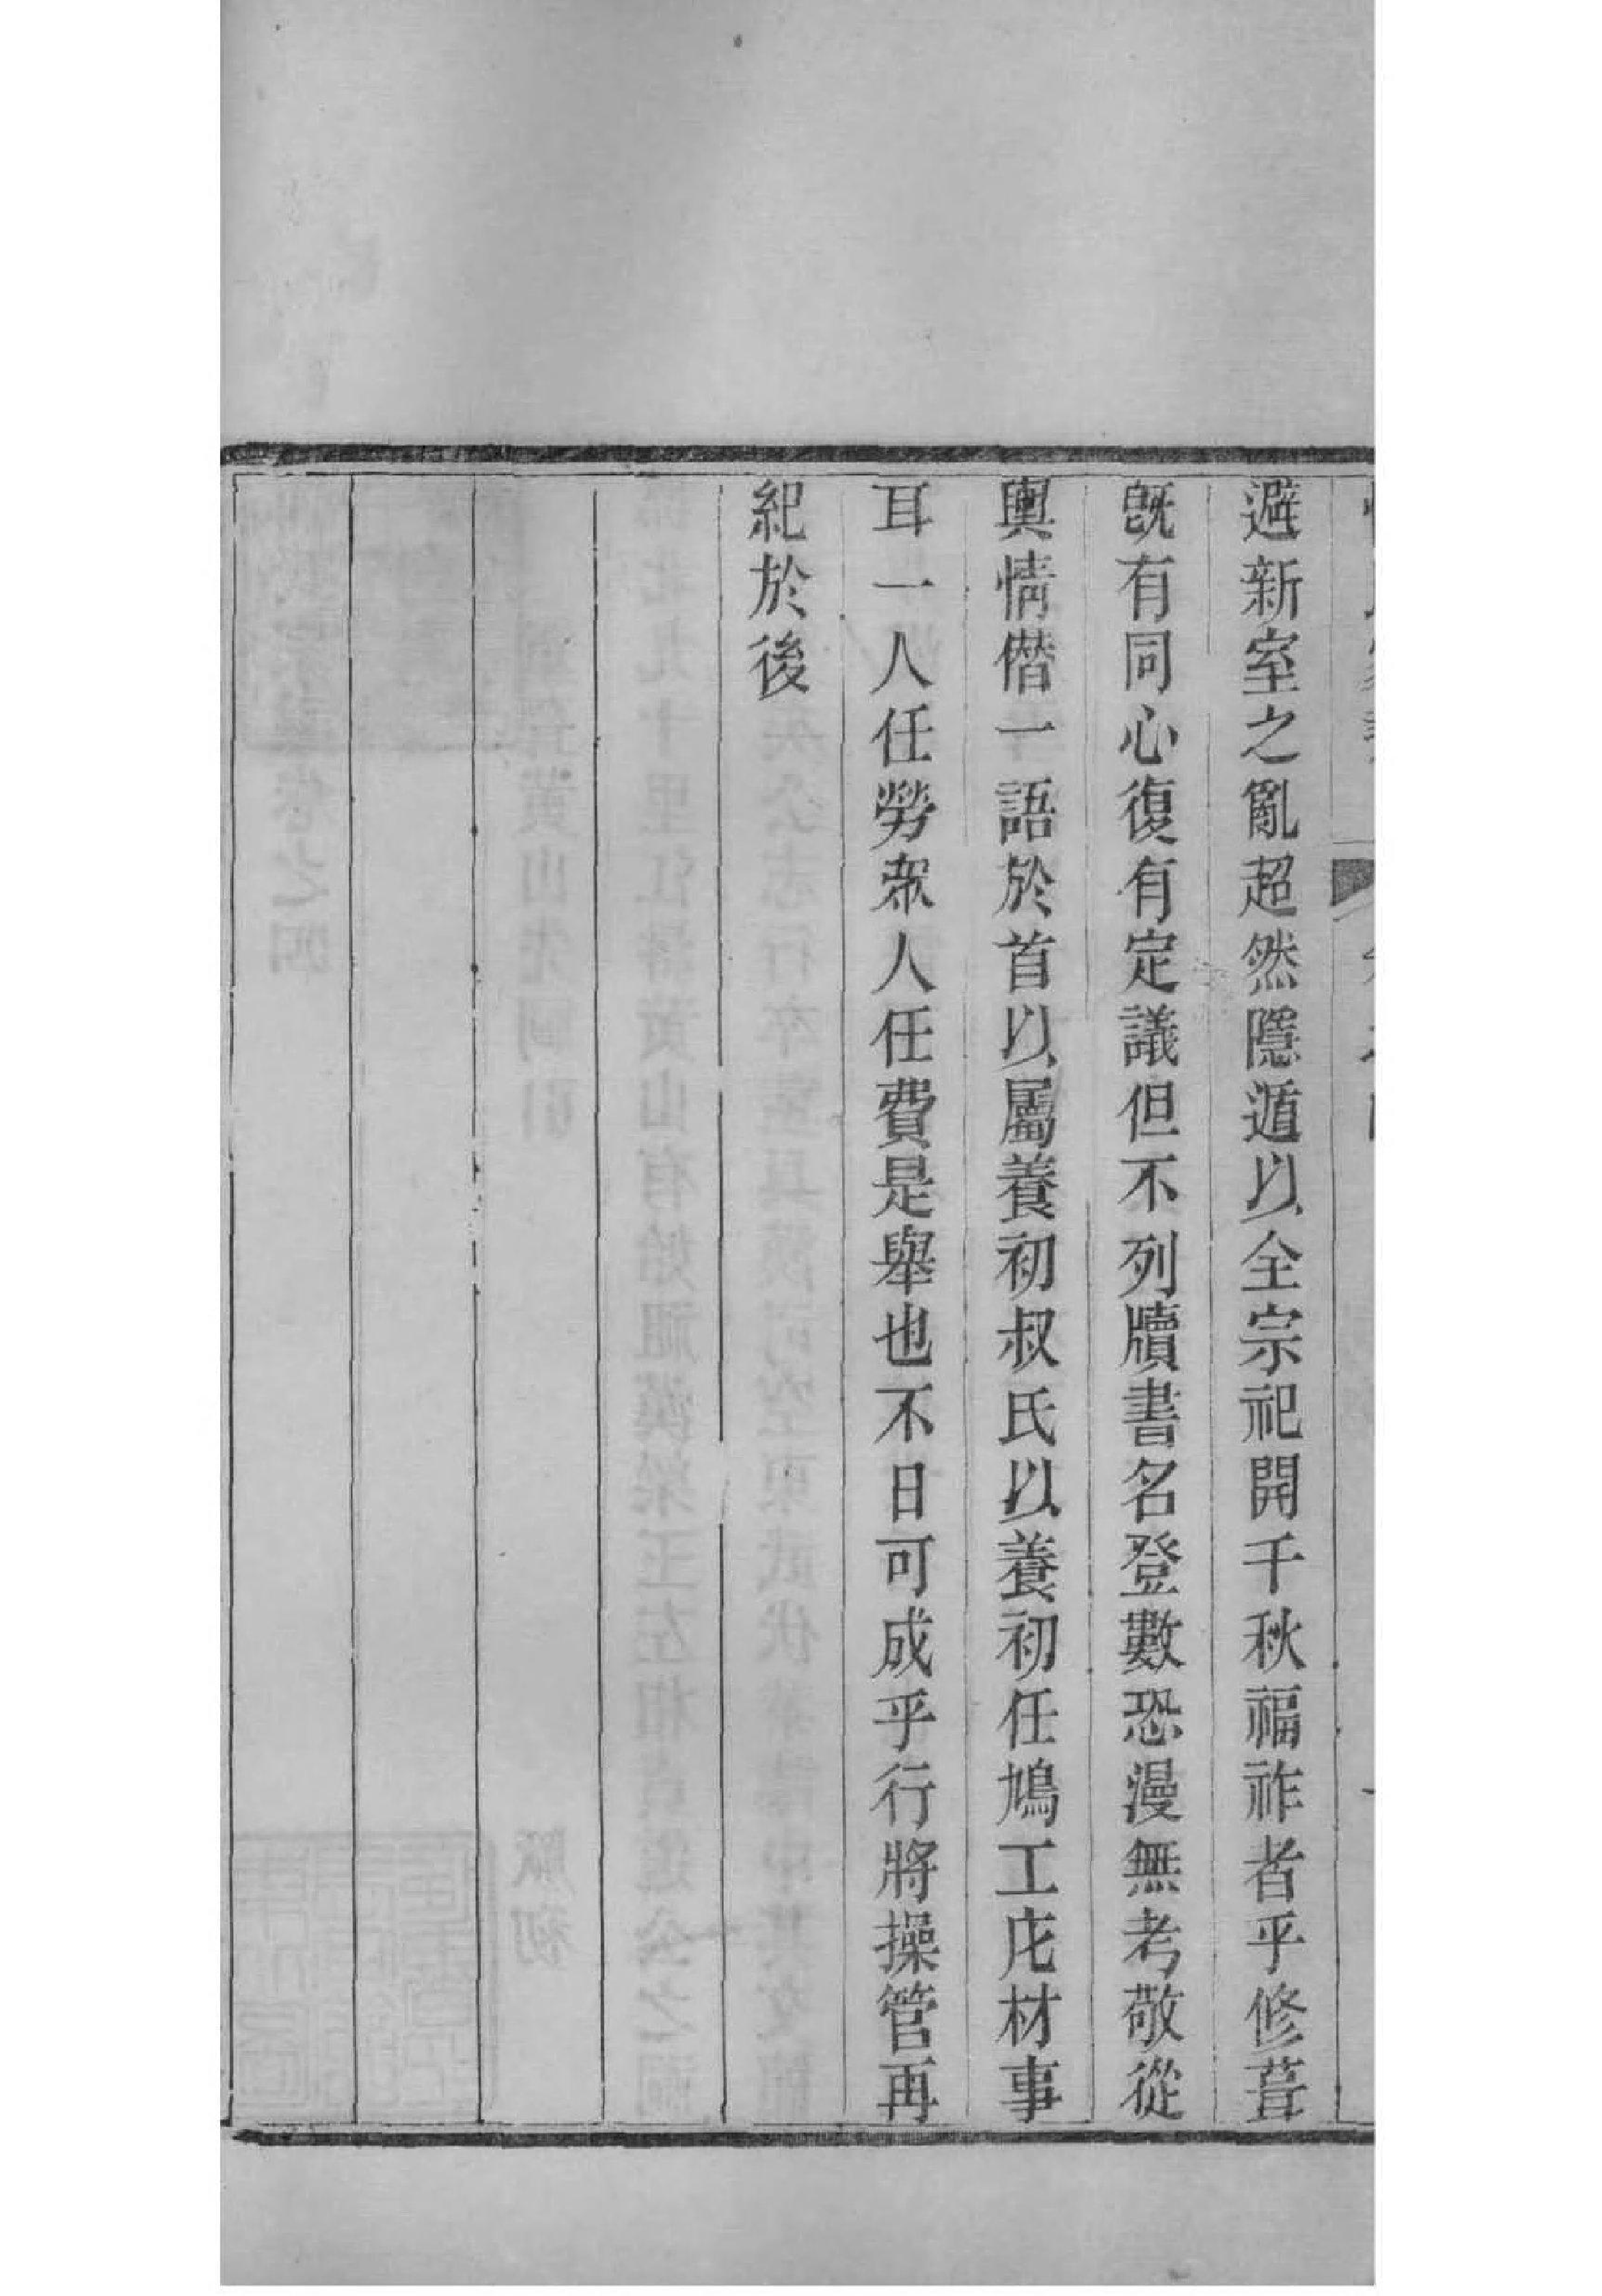 避新室之亂超然隱遁以全宗祀開千秋福祚者乎修葺
旣有同心復有定議但不列牘書名登數恐漫無考敬從
輿情僭一語於首以屬養初叔氏以養初任鳩工庀材事
耳一人任勞衆人任費是舉也不日可成乎行將操管再
紀於後